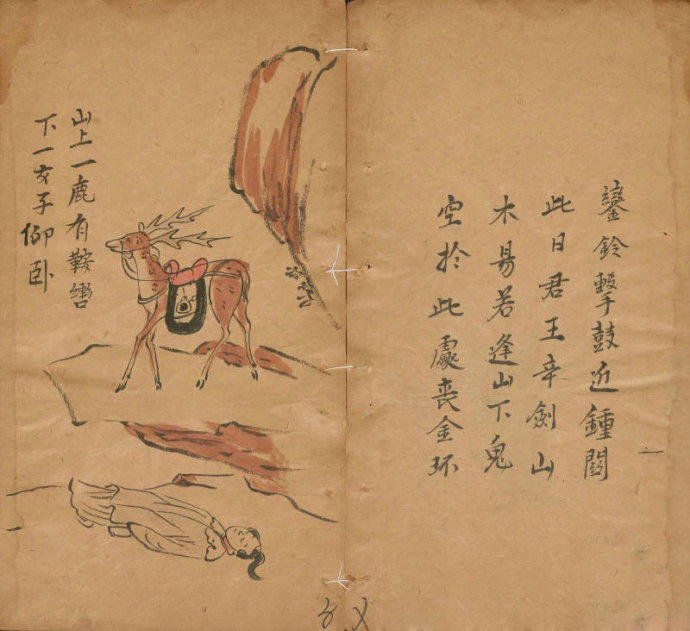 鑾鈴擊鼓近鍾閣
此日君王幸劍山
木易若逢山下鬼
空於此處喪金环
山上一鹿有鞍轡
下一女子仰卧